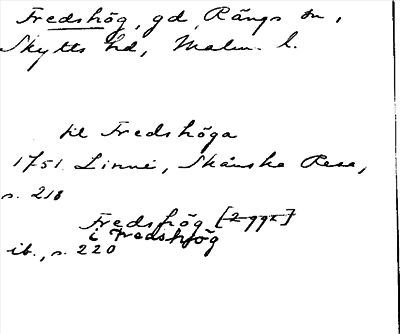 Fredshög, gd, Rängs sn,
Skytts hd, Malm. l.
till Fredshöga
1751. Linné, Skånska Resa,
s. 218
Fredshög [2 ggr]
i Fredshög
ib., s. 220